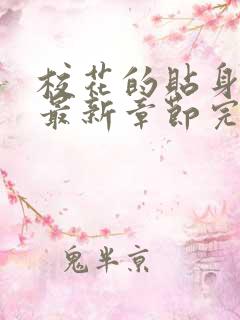 校花的贴身
最新章节完
鬼半京